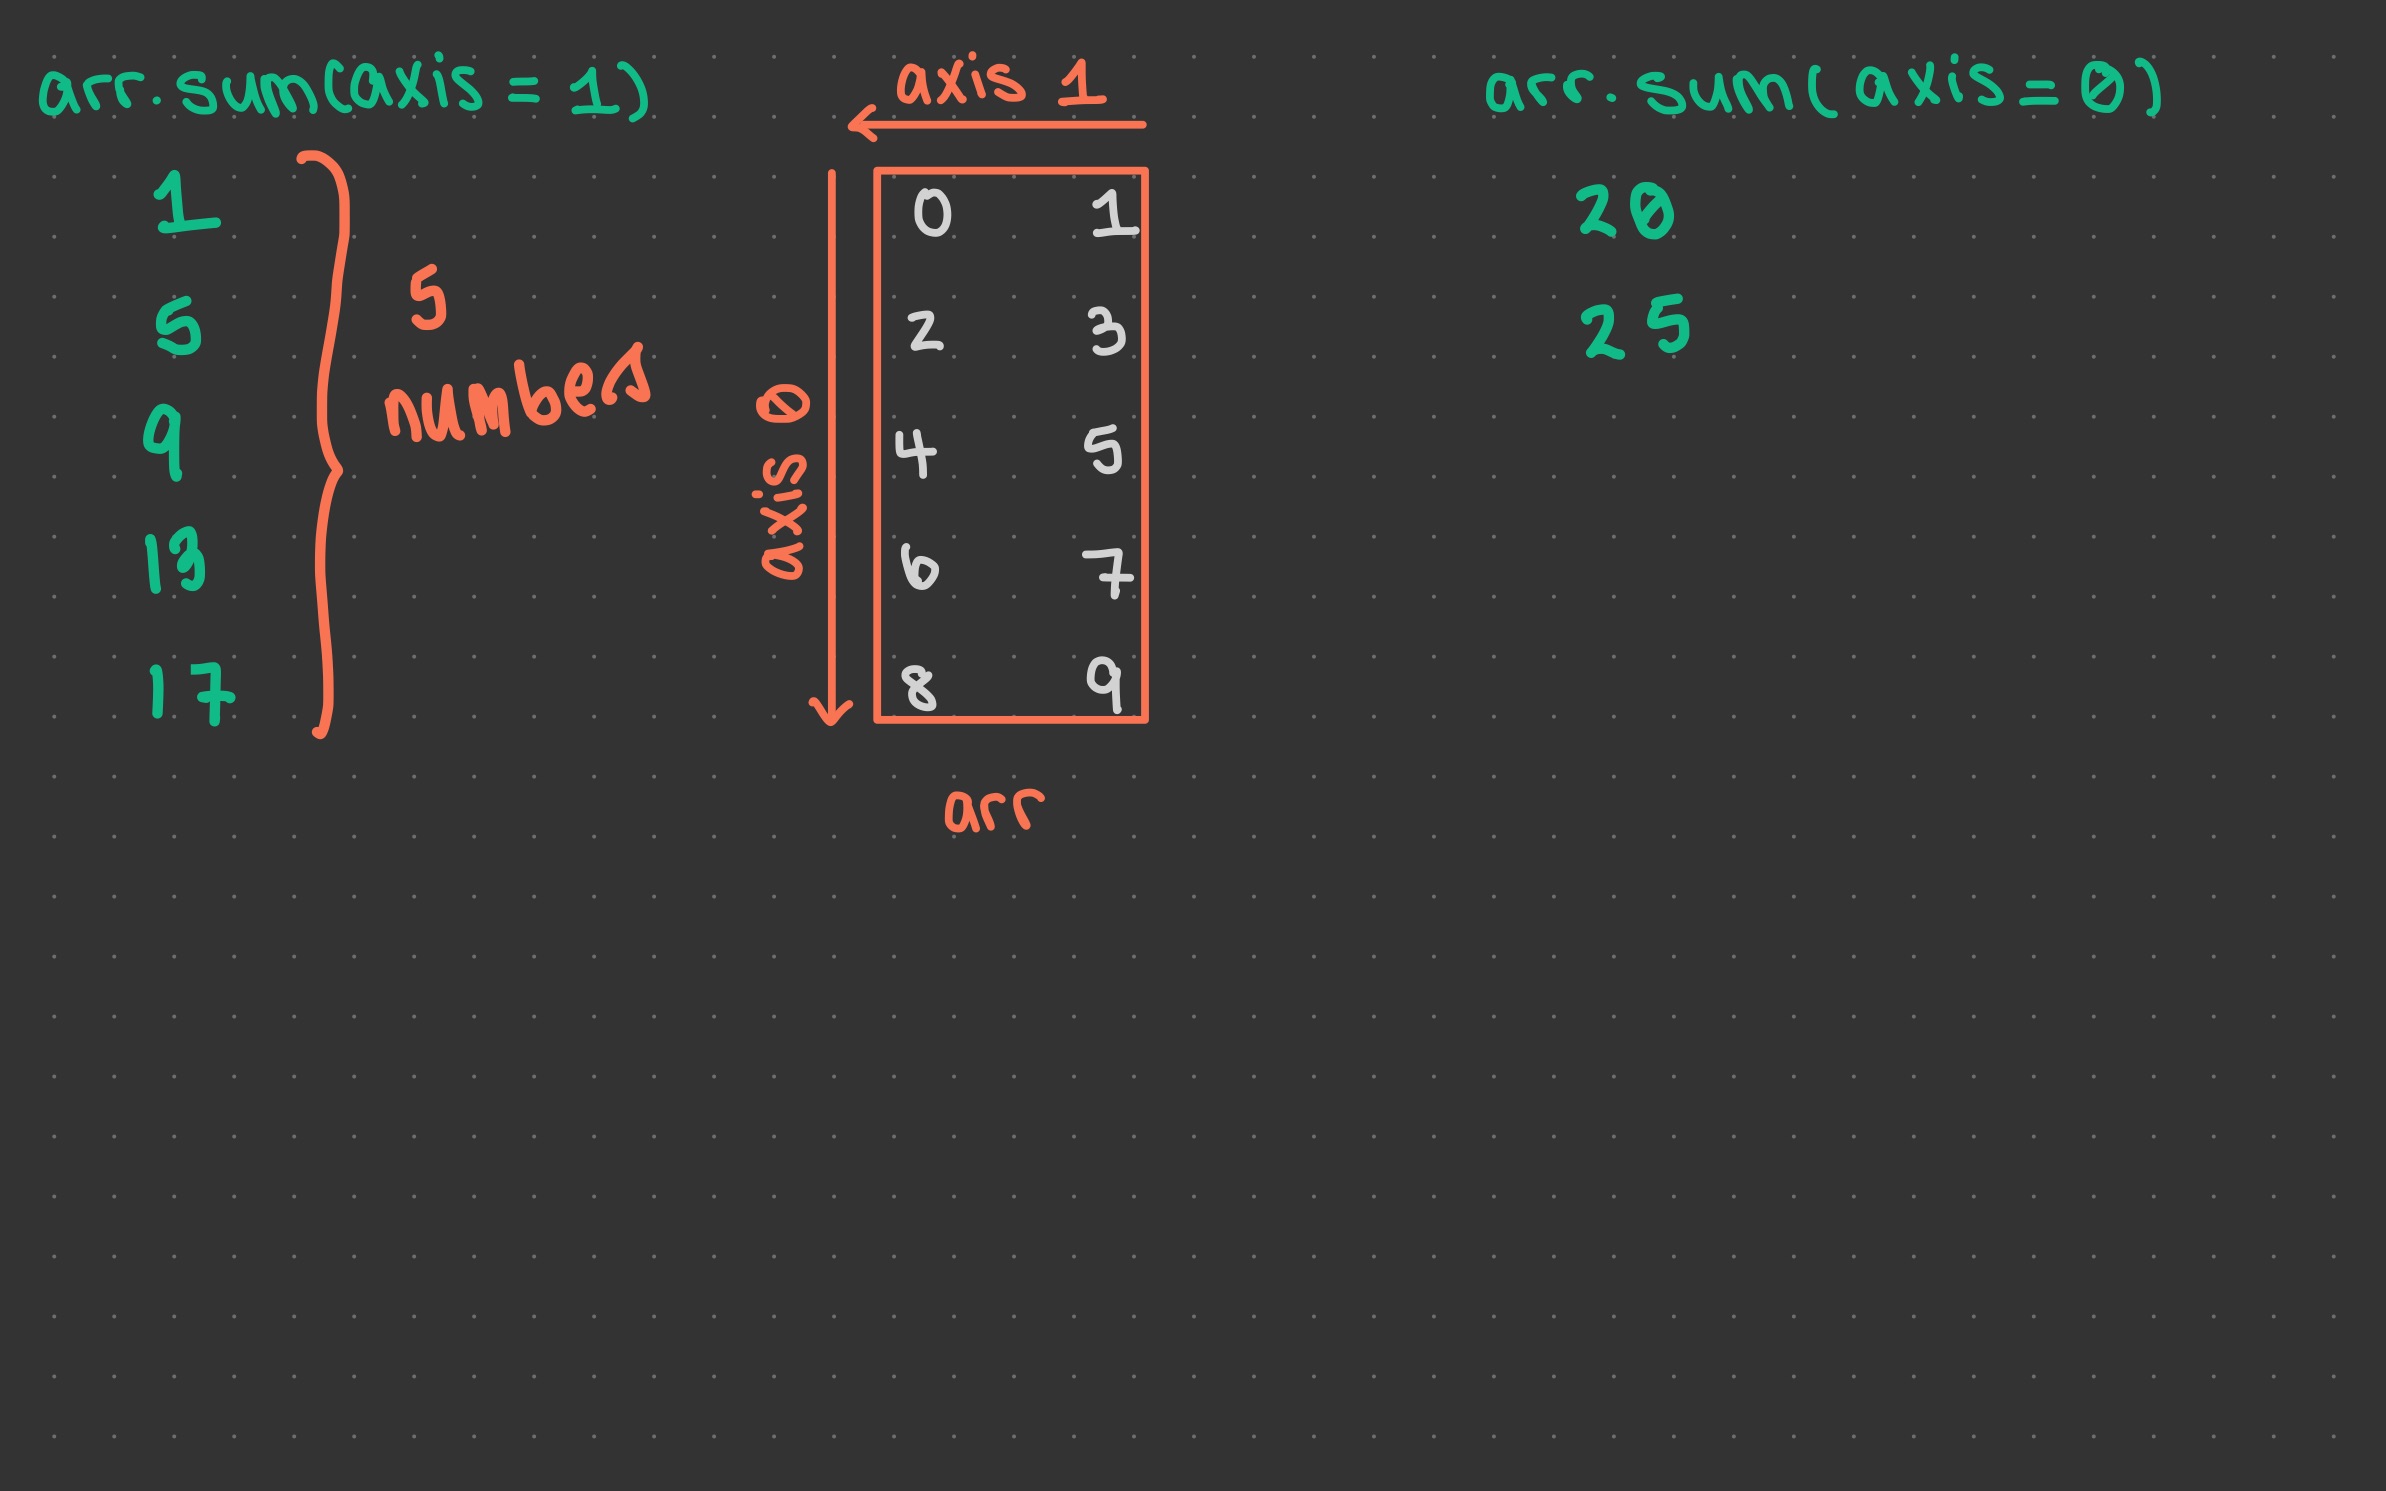 arr.sum(axis=1)
1
5
9
13
17
5
numbers
axis 1
axis 0
0 1
2 3
4 5
6 7
8 9
arr
arr.sum(axis=0)
20
25